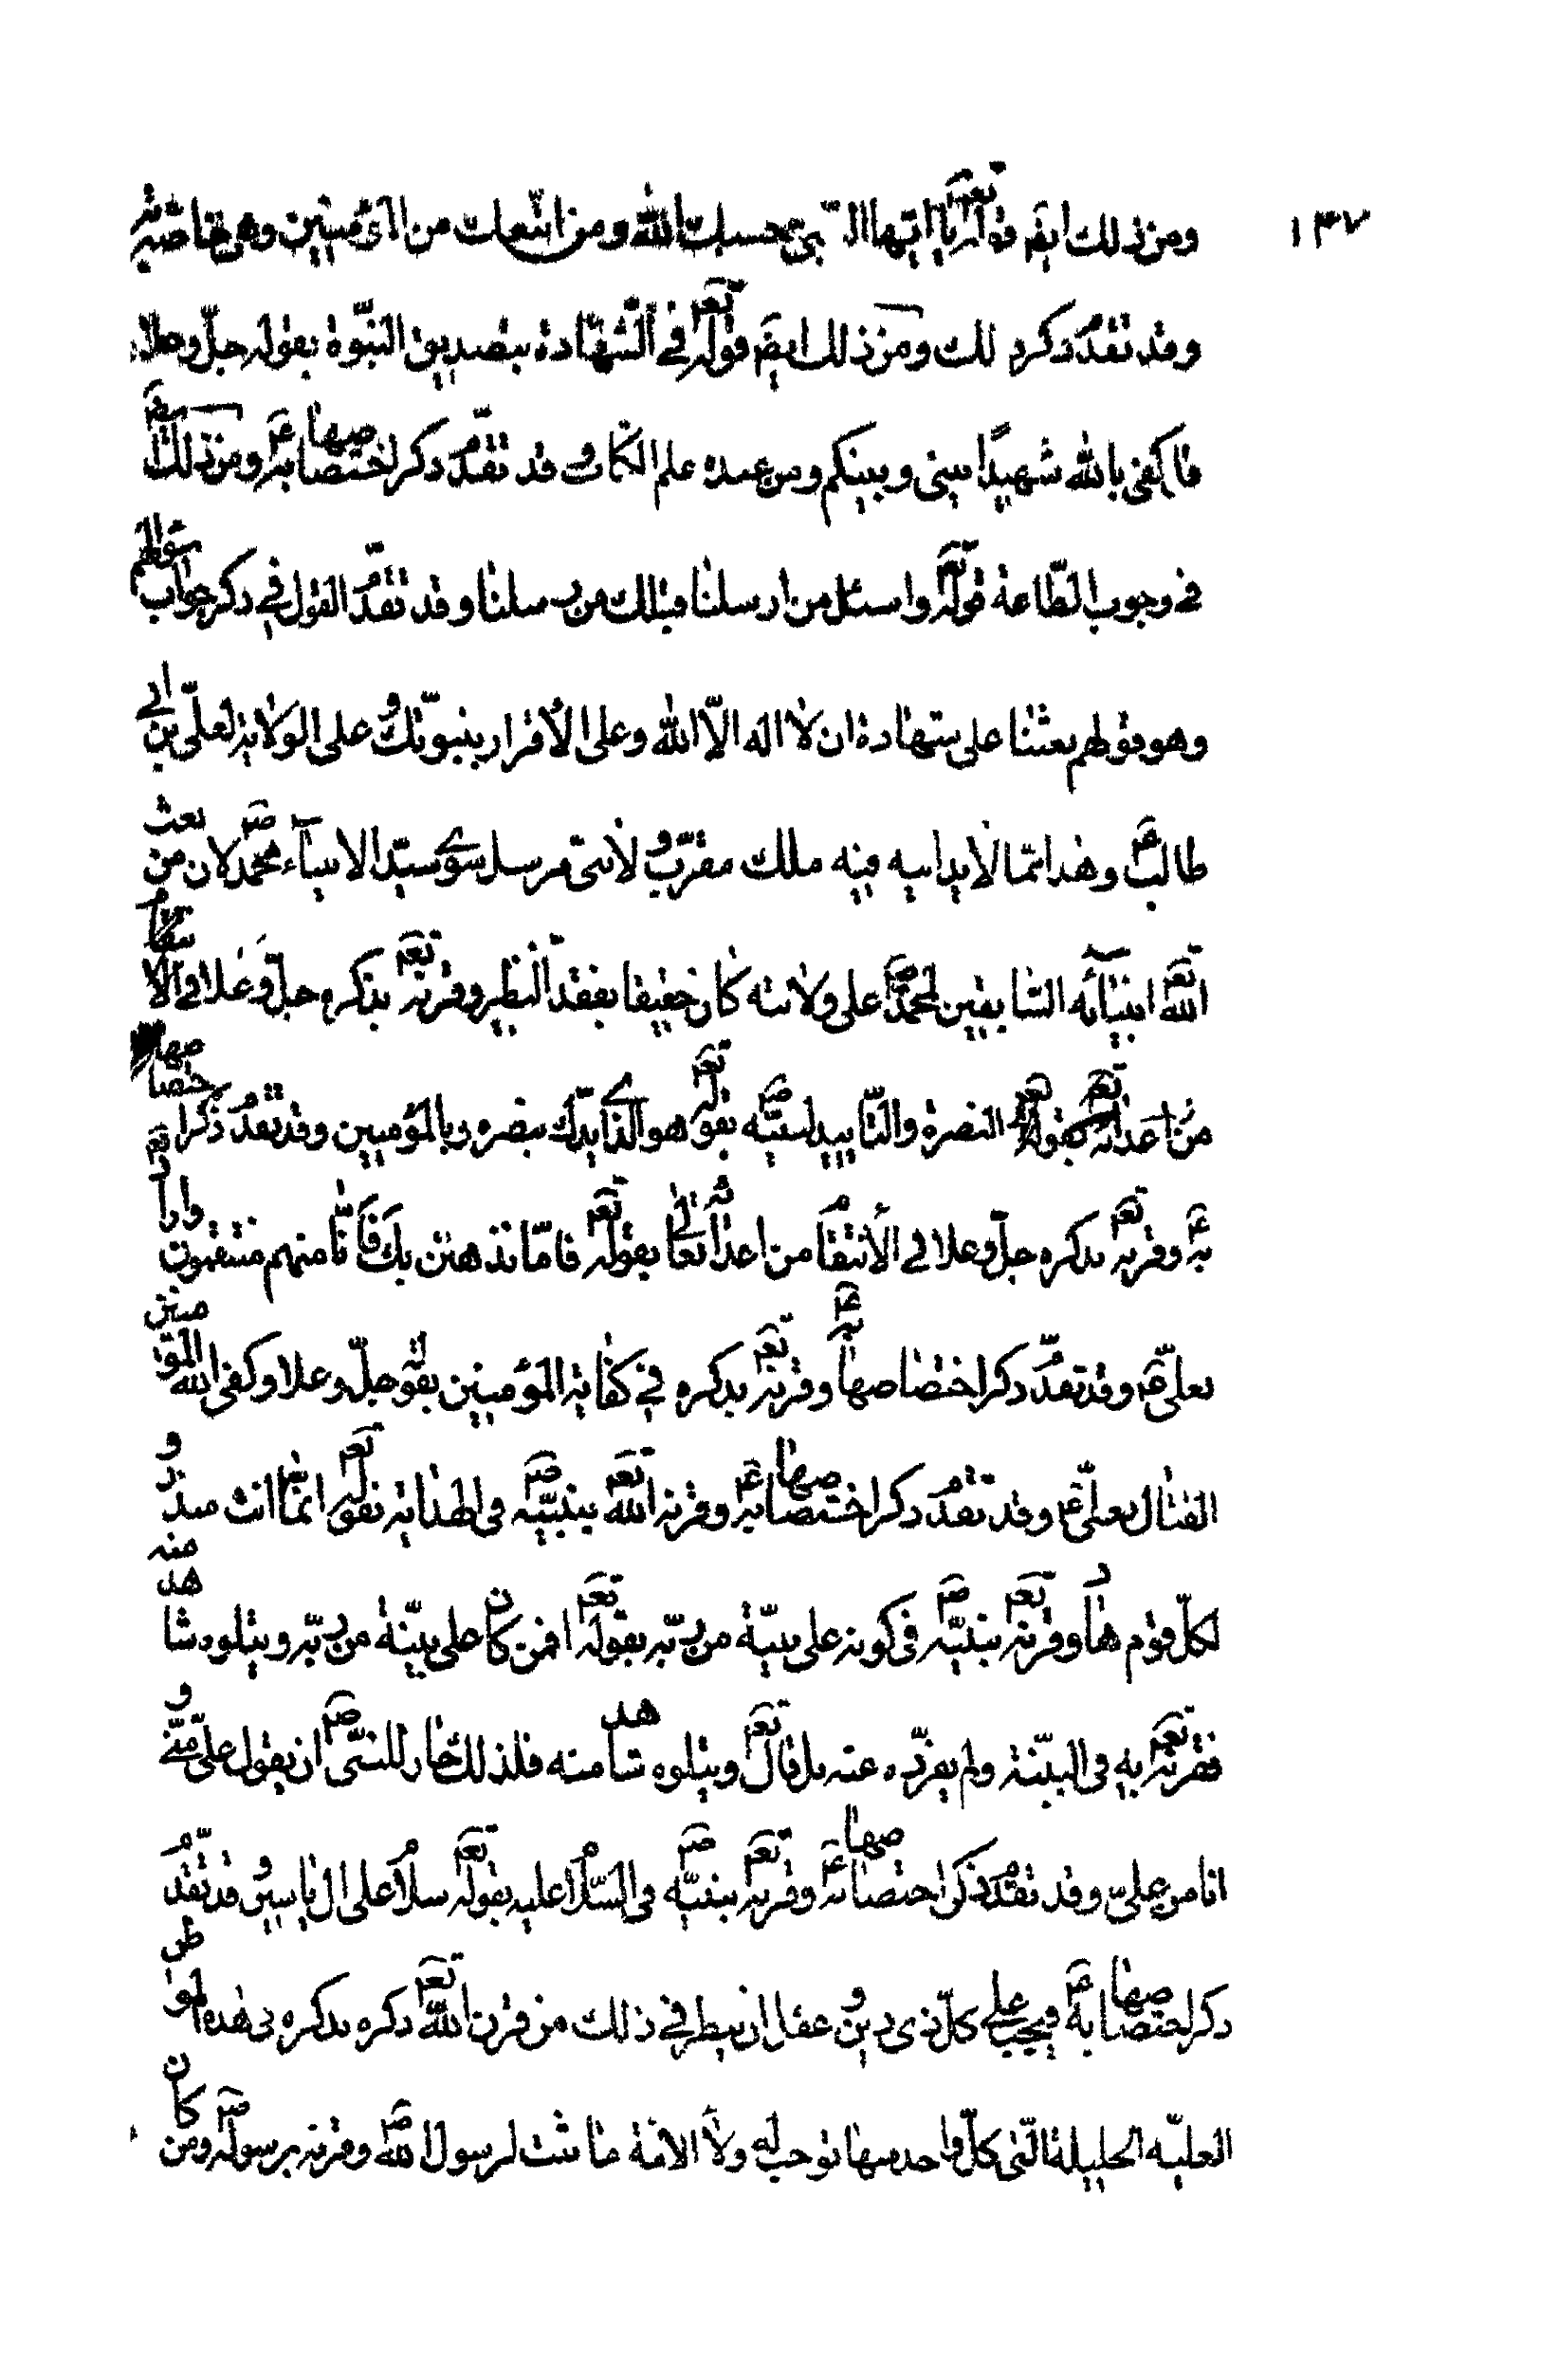 ١٣٧
ومن ذلك ايضَ قوله تعَ يا ايّها النّبى حسبك الله ومن اتّبعك من المؤمنين وهى خاصّة
وقد تقدّم ذكر ذلك ومن ذلك ايضَ قوله تعَ فى الشّهادة بتصديق النبّوة بقوله جلّ وعلا
فاكفى بالله شهيدًا بينى وبينكم ومن عنده علم الكتاب وقد تقدّم ذكر اختصاصها به عَ ومن ذلك ايضَ
فى وجوب الطّاعة قوله تعَ واسئل من ارسلنا قبلك من رسلنا وقد تقدّم القول فى ذكر جواب سؤالهم
وهو قولهم بعثنا على شهادة ان لا اله الاّ الله وعلى الأقرار بنبوّتك وعلى الولاية لعلّى بن ابى
طالب عَ وهذا ممّا لا يدانيه فيه ملك مقرّب ولا نبىّ مرسل سوى سيّد الانبياء محمّد صَ لان من بعث
الله تعَ انبيائه السّابقين لمحمّد صَ على ولايته كان حقيقا بفقد النظير وقرنه تعَ بذكره جلّ وعلا فى الانتقام
من اعدائه بقوله النصرة والتّاييد لنبيّه صَ بقوله تعَ هو الّذى ايدّك بنصره وبالمؤمنين وقد تقدّم ذكر اختصاصها
به عَ وقرنه تعَ بذكره جلّ وعلا فى الأنتقام من اعدائه تعالى بقوله تعَ فامّا نذهبن بك فانّا منهم منتقمون
بعلىّ عَ وقد تقدّم ذكر اختصاصها به عَ وقرنه تعَ بذكره فى كفاية المؤمنين بقوله جلّ وعلا وكفى الله المؤمنين
القتال بعلىّ عَ وقد تقدّم ذكر اختصاصها به عَ وقرنه الله تعَ بنبيّه صَ فى الهداية بقوله تعَ انّما انت منذر و
لكلّ قوم هاد وقرنه تعَ بنبيّه صَ فى كونه على بيّنة من ربّه بقوله تعَ افمن كان على بيّنة من ربّه ويتلوه شاهد منه
فقرنه تعَ به فى البيّنة ولم يفرّده عنه بل قال تعَ ويتلوه شاهد منه فلذلك جاز للنبّى صَ ان يقول علىّ منّى و
انا من علىّ وقد تقدّم ذكر اختصاصها به عَ وقرنه تعَ بنبيّه صَ فى السّلام عليه بقوله تعَ سلام على ال ياسين وقد تقدّم
ذكر اختصاصها به عَ فيجب على كلّ ذى دين وعقل ان ينظر فى ذلك من قرن الله تعَ ذكره بذكره فى هذه المواطن
العليّه الجليلة الّتى كلّ واحد منها توجب له ولاء الامّة ما ثبت لرسول الله صَ وقرنه برسوله صَ ومن كان